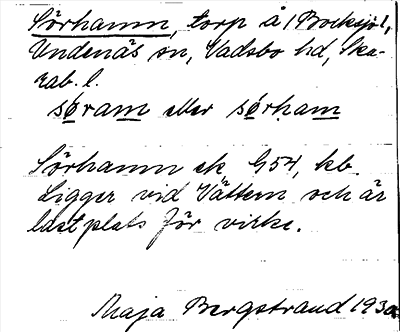 Sörhamn, torp å 1 Bocksjö 1,
Undenäs sn, Vadsbo hd, Ska-
rab. l.
søram eller sørham
Sörhamn ek. G54, kb.
Ligger vid Vättern och är
lastplats för virke.
Maja Bergstrand 1930